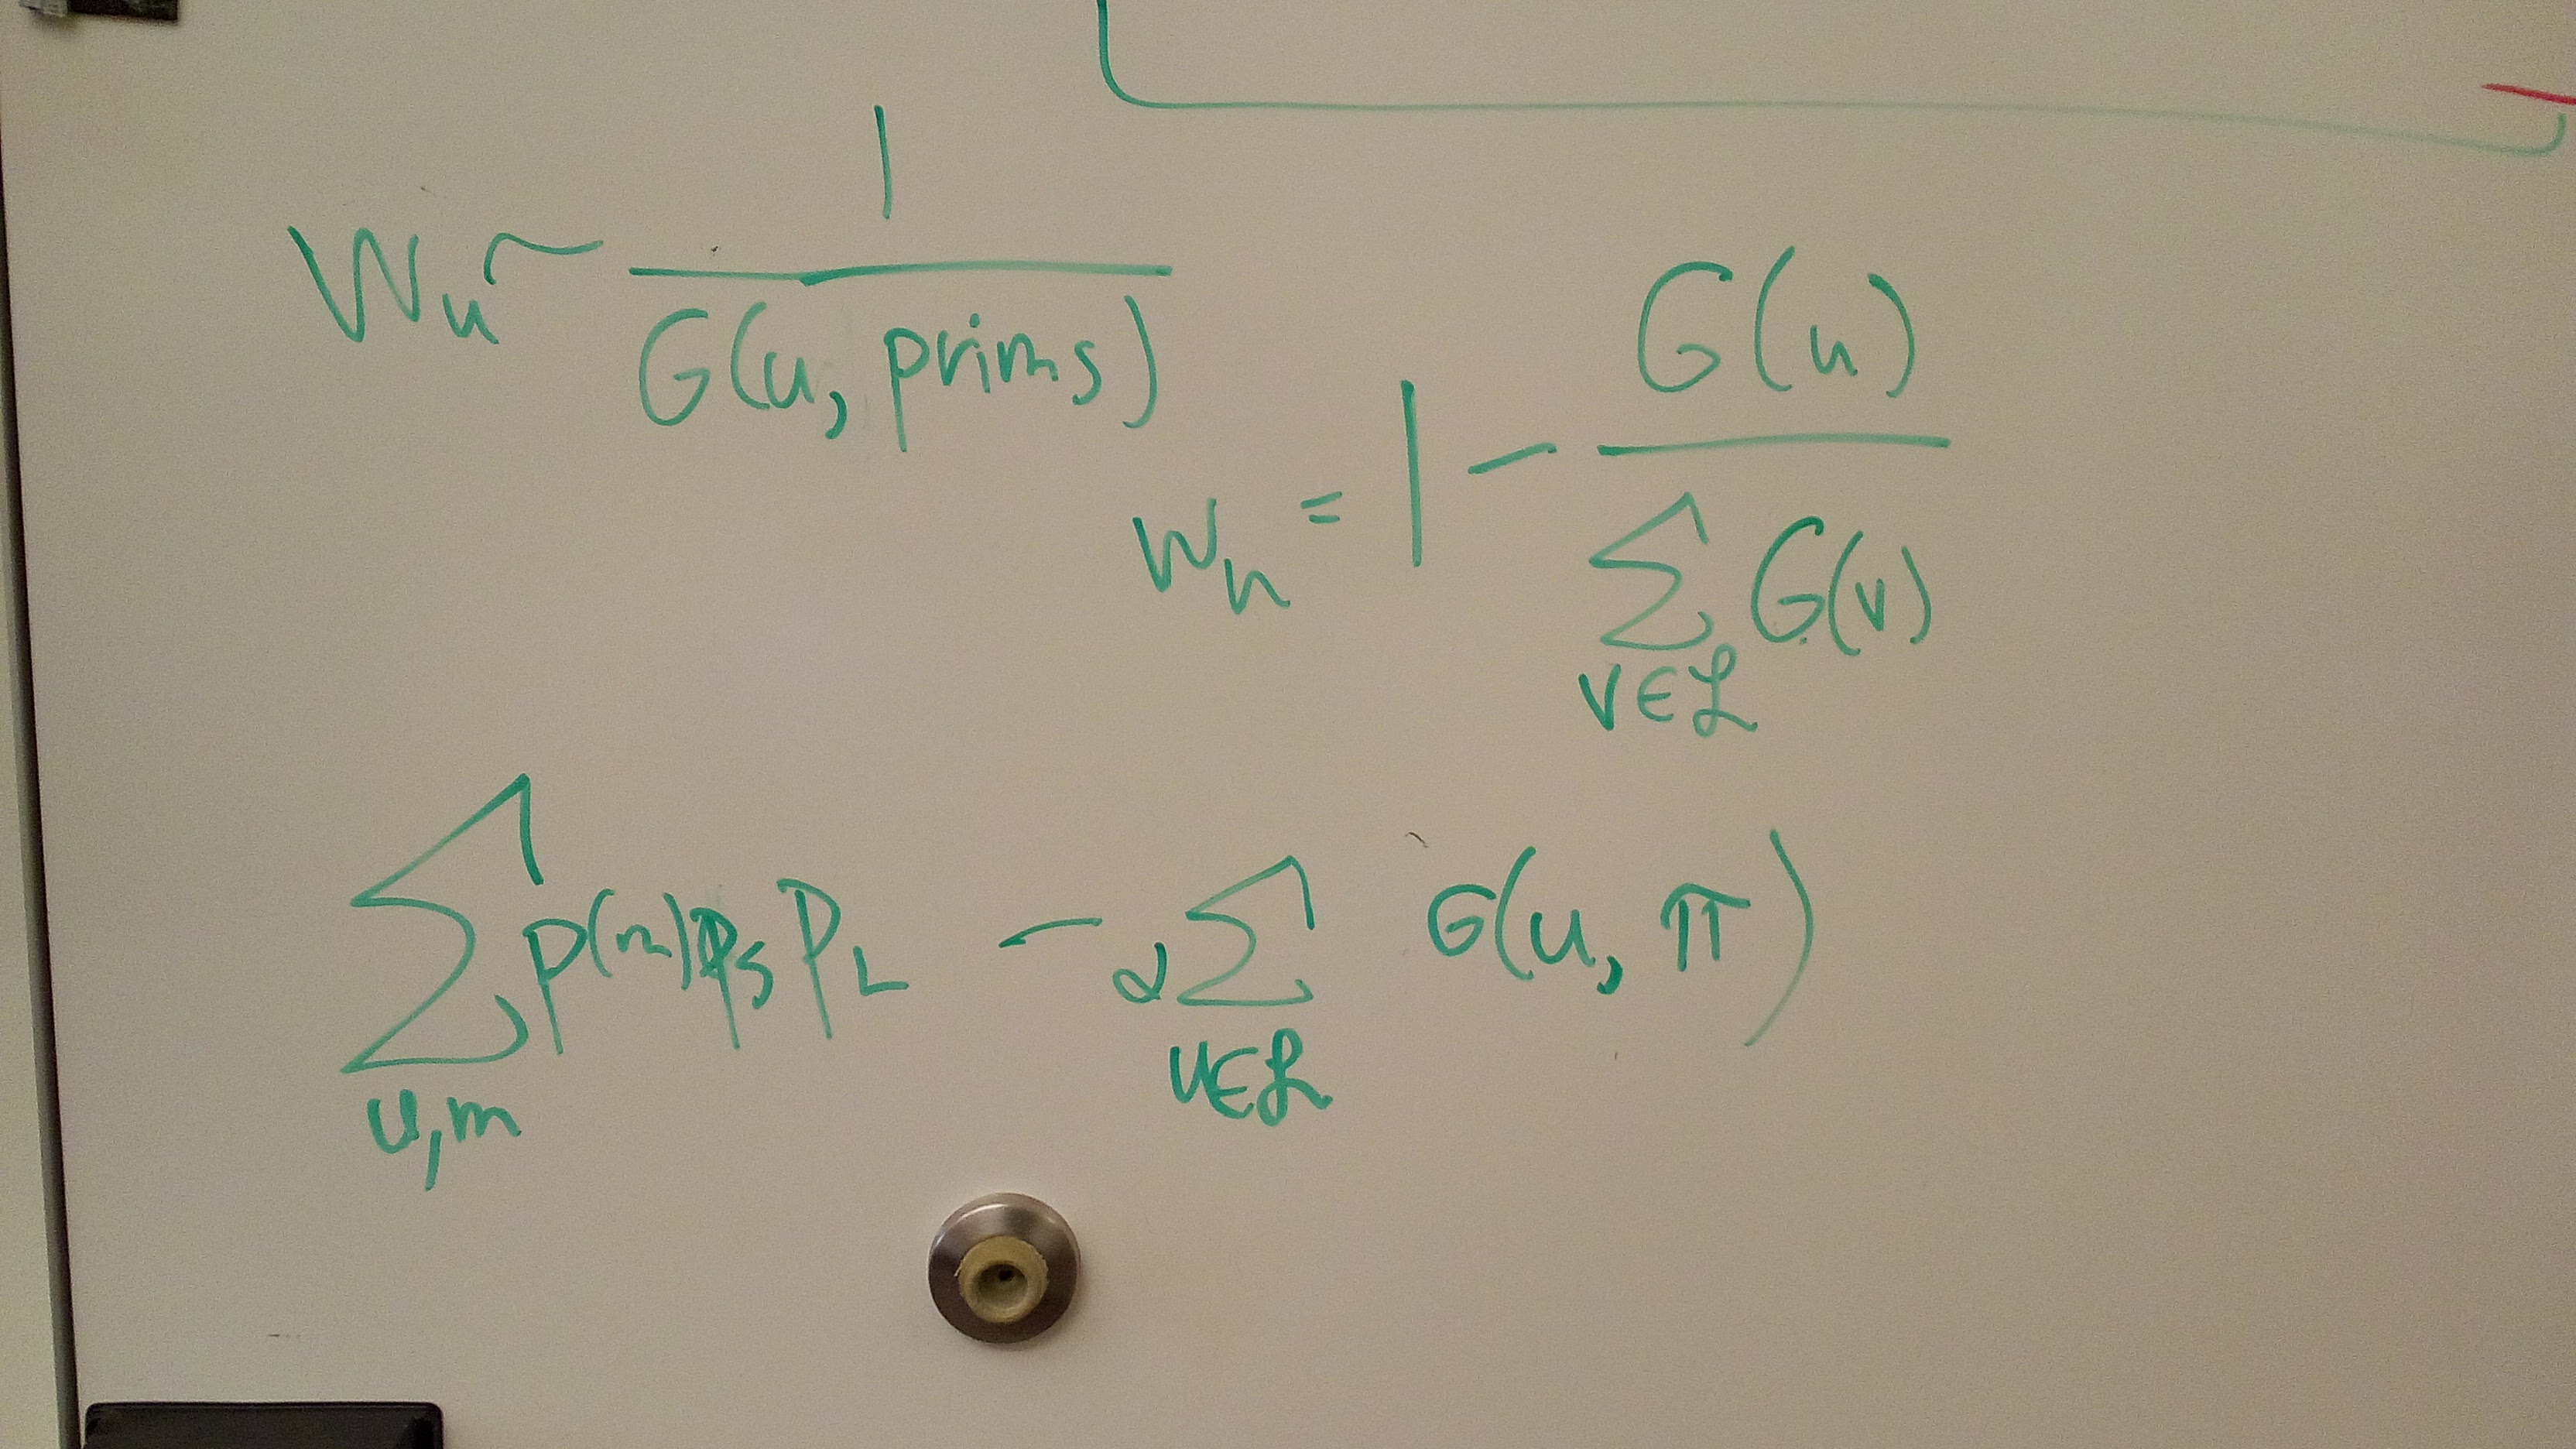 W_u ~ 1 / G(u, prims)
w_u = 1 - G(u) / ∑_{v∈ℒ} G(v)
∑_{u,m} p(m) p_S p_L - α ∑_{u∈ℒ} G(u, π)